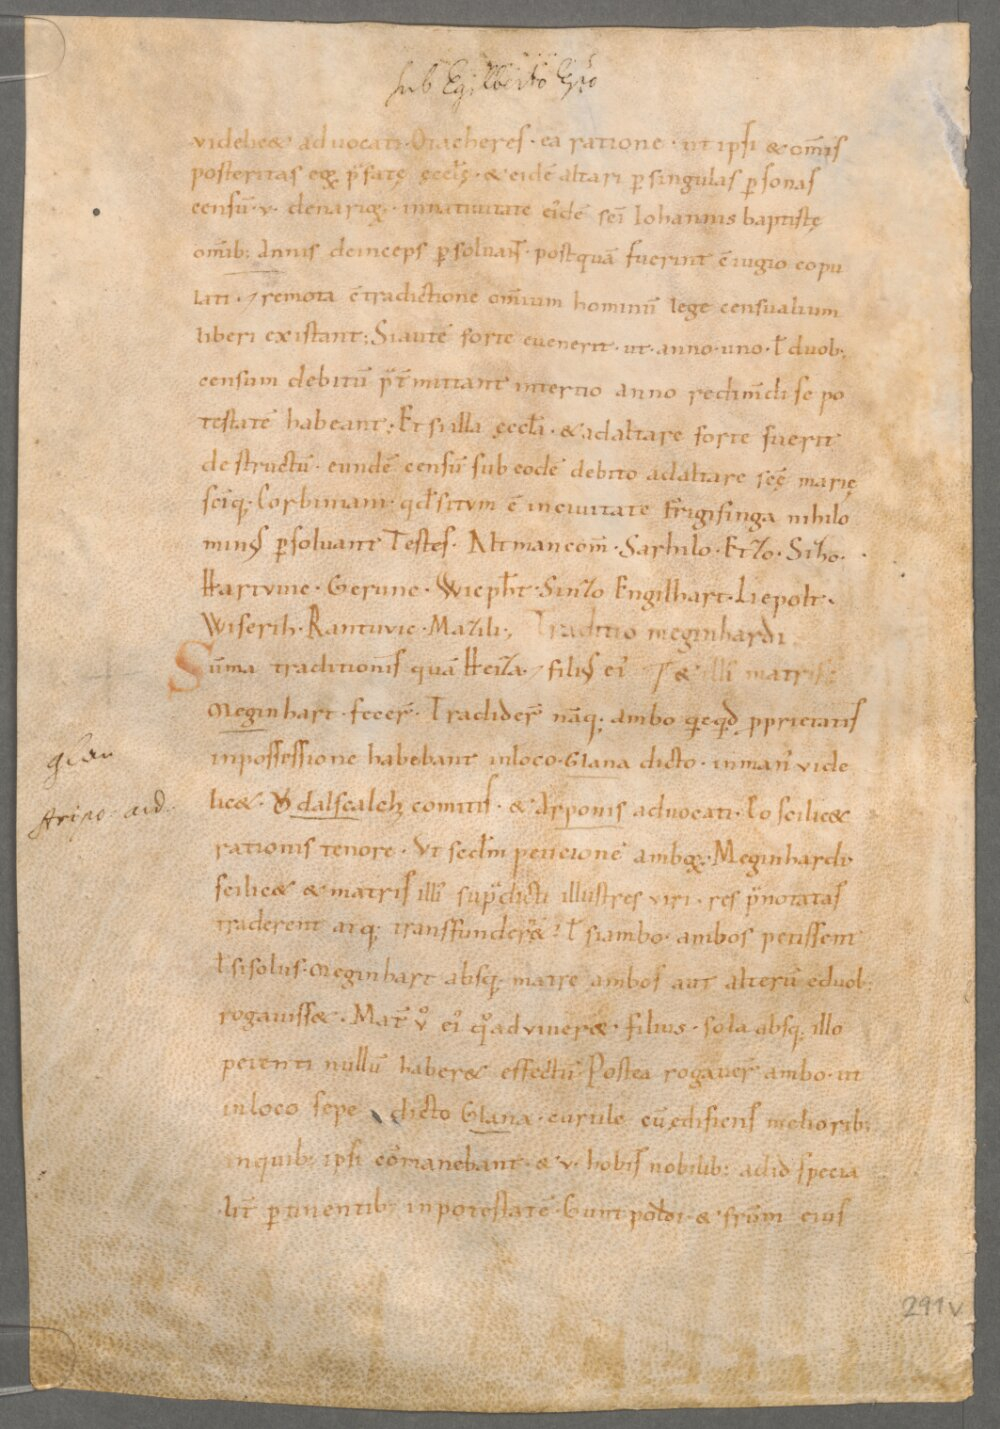 sub Egilberto Epo
videlic& aduocati Otacheres· ea ratione· ut ipsi & om̄is
posteritas eoꝝ p̄fatę ęccłę· & eidē altari ꝑ singulas ꝑsonas
censū· v· denarioꝝ· innatiuitate eiꝰdē sc̄i Iohannis baptistę
omīb; annis deinceps ꝑsoluant· postquā fuerint c̄iugio copu
lati· remota c̄tradictione om̄ium hominū lege censualium
liberi existant; Si autē forte euenerit· ut· anno· uno· ł duob;
censum debitū p̄t̄mittant intertio anno redim̄di se po
testatē habeant; Et si illa ęccła· & ad altare forte fuerit
destructū· eundē censū sub eodē debito ad altare sc̄ę marię
sc̄iq; Corbiniani· qđ situm ē inciuitate Frigisinga nihilo
minꝰ ꝑsoluant Testes· Altman com̄· Sarhilo· Etzo· Sizo·
Hartvuic· Gerunc· Wicpħt· Sinzo Engilhart· Liepolt·
Wiserih· Rantuvic· Mazili; Traditio meginhardi
Sūma traditionis quā Heiza· / filiꝰ eiꝰ & illiꝰ matris
Meginhart· fecer̄· Tradider̄ nāq; ambo qcqd ꝓprietatis
inpossessione habebant inloco· Glana dicto· inmanꝰ vide
lic&· Ődalscalchi comitis· & Arponis aduocati· Eo scilic&
rationis tenore· Ut secđm peticionē amboꝝ· Meginhardi
scilic& & matris illiꝰ sup̄dicti illustres viri· res p̄notatas
traderent atq; transfunder&· ł si ambo· ambos petissent
ł si solus· Meginhart absq; matre ambos aut alterū eduob;
rogauiss&· Mat̄ v̊ eiꝰ q̊ad viuer& filius· sola absq; illo
petenti nullū haber& effectū Postea rogauer̄ ambo· ut
inloco sepe dicto Glana· curtile cū ędificiis meliorib;
inquib; ipsi cōmanebant· & v· hobis nobilib; ad id specia
lit̄ ꝑtinentib; inpotestatē· Guntpoldi· & fr̄um eius
glan
Aripo· ad
291v